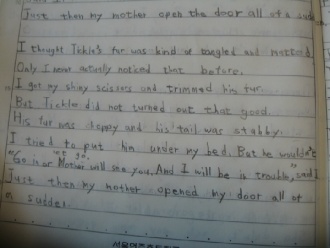 Just then my mother open the door all of a sudd
I thought Tickle's fur was kind of tangled and matted.
Only I never actually noticed that before.
I got my shiny scissors and trimmed his fur.
But Tickler did not turned out that good.
His fur was loppy and his tail was stabby.
I tried to put him under my bed. But he wouldn't
"Go in or Mother will see you. And I will be in trouble," said I
Just then my mother opened my door all of
a sudden